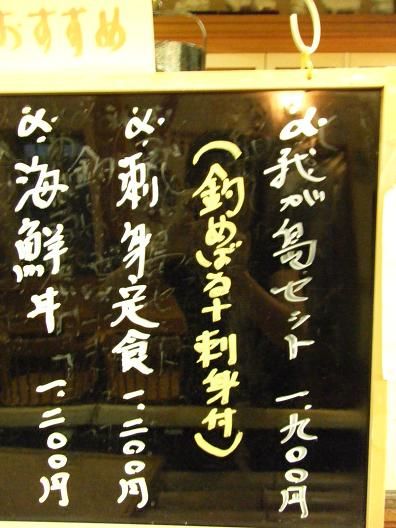 おすすめ
α・我が島セット 一、九〇〇円
(釣めばる十刺身付)
α・刺身定食 一、二〇〇円
α・海鮮丼 一、二〇〇円